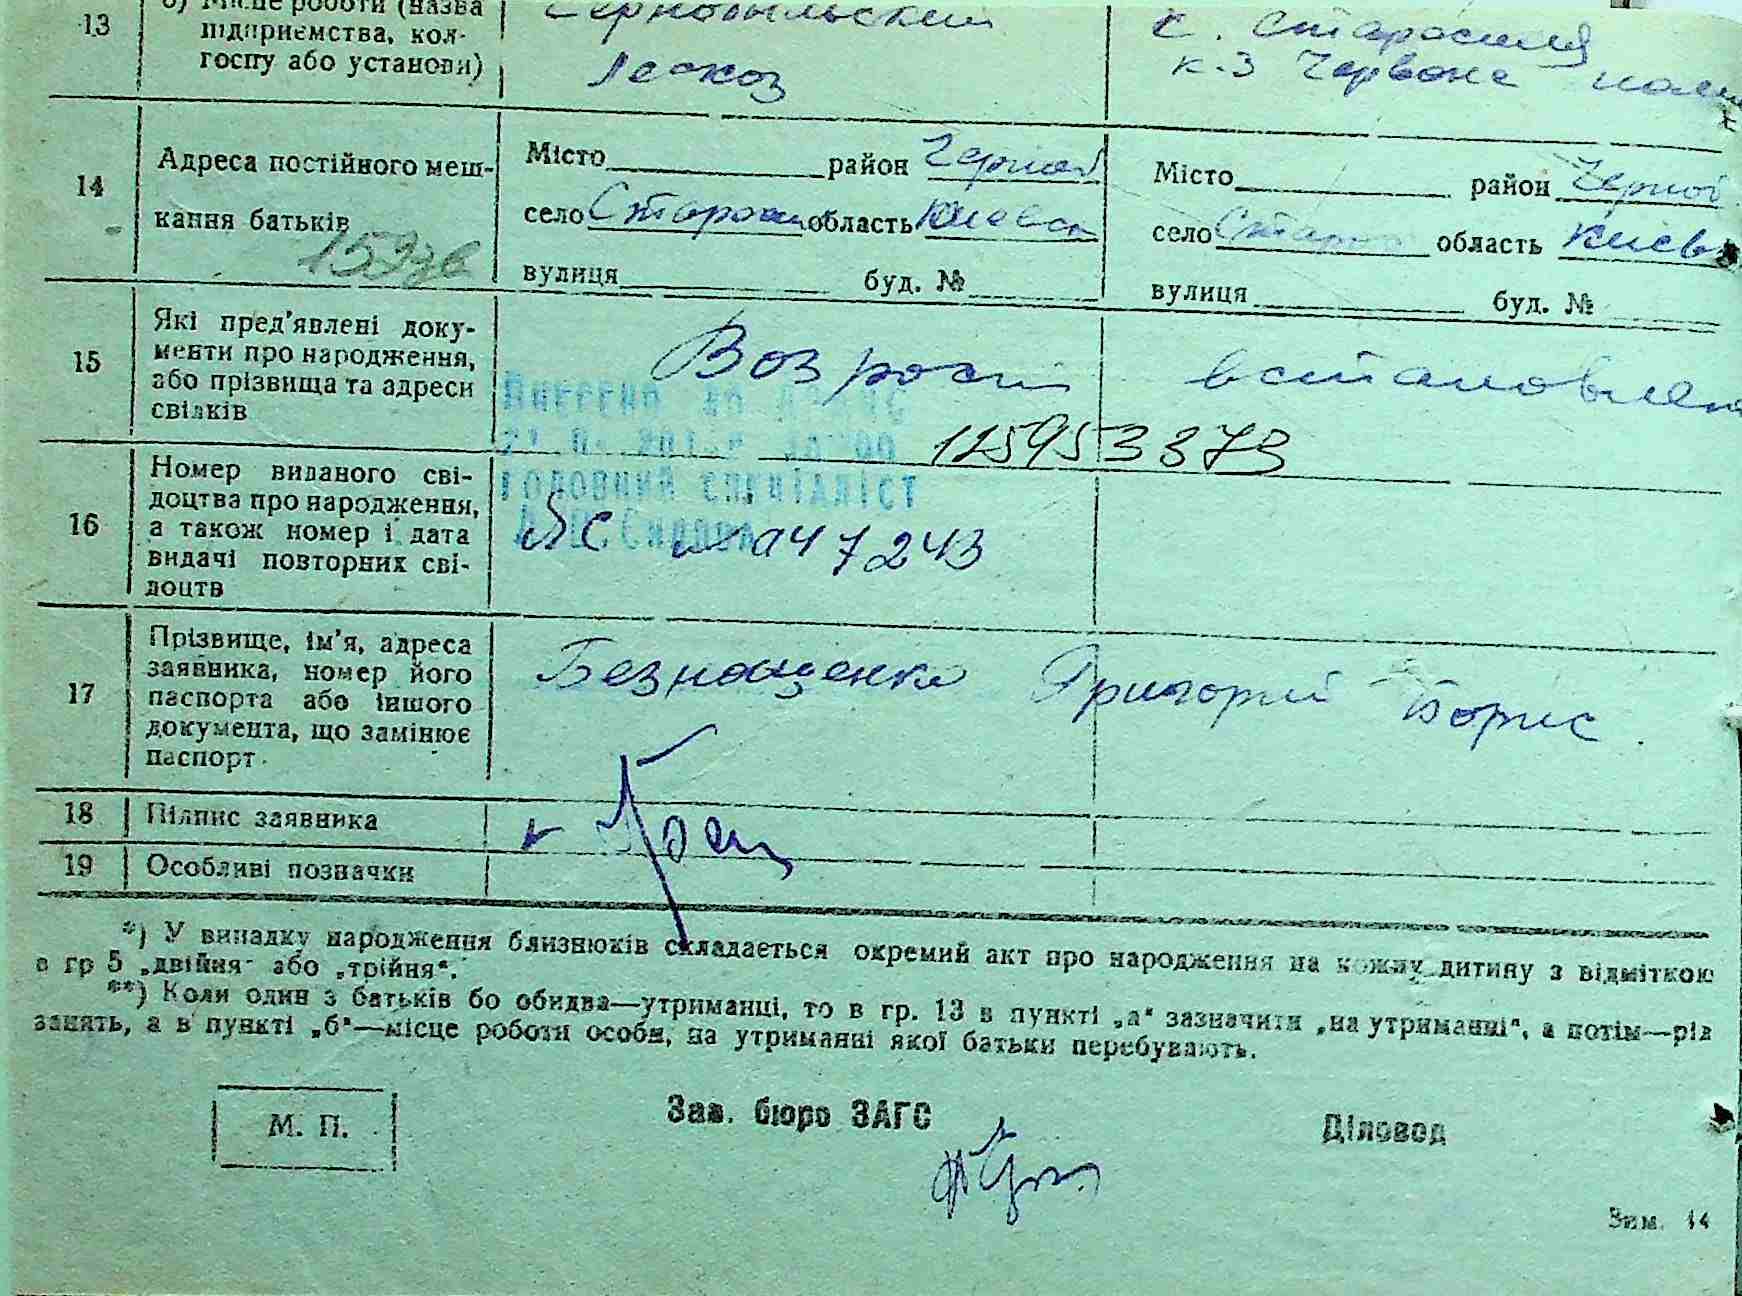 13
б) Місце роботи (назва
підприємства, кол-
госпу або установи)
Чернобыльский
Лесхоз
с. Староселля
к-з Червоне
14
Адреса постійного меш-
кання батьків
Місто район Черноб
село область Киевск
вулиця буд. №
Місто район Черноб
село область Киевс
вулиця буд. №
15
Які пред'явлені доку-
менти про народження,
або прізвища та адреси
свідків
Возраст встановлен
Внесено до ДРАЦС
головний спеціаліст
115953373
16
Номер виданого сві-
доцтва про народження,
а також номер і дата
видачі повторних сві-
доцтв
047243
17
Прізвище, ім'я, адреса
заявника, номер його
паспорта або іншого
документа, що замінює
паспорт
Безнощенко Григорій Борис.
18
Підпис заявника
19
Особливі позначки
*) У випадку народження близнюків складається окремий акт про народження на кожну дитину з відміткою
в гр 5 „двійня" або „трійня".
**) Коли один з батьків бо обидва—утриманці, то в гр. 13 в пункті „а" зазначити „на утриманні", а потім—рід
занять, а в пункті „б"—місце роботи особи, на утриманні якої батьки перебувають.
М. П.
Зав. бюро ЗАГС
Діловод
Зим. 14